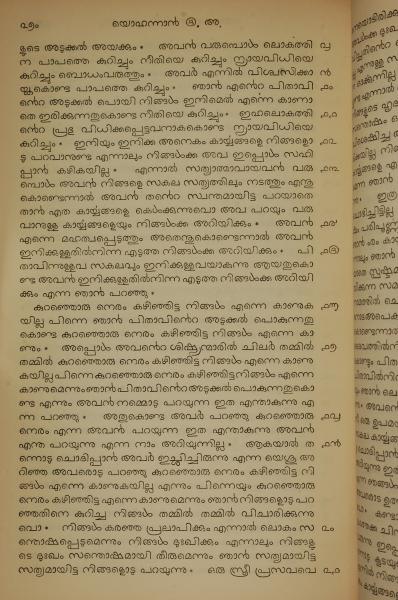 ൨൬൦ യൊഹന്നാൻ ൧൬. അ.
ളുടെ അടുക്കൽ അയക്കും * അവൻ വരുമ്പൊൾ ലൊകത്തി ൮
ന പാപത്തെ കുറിച്ചും നീതിയെ കുറിച്ചും ന്യായവിധിയെ
കുറിച്ചും ബൊധംവരുത്തും * അവർ എന്നിൽ വിശ്വസിക്കാ ൯
യ്കകൊണ്ട പാപത്തെ കുറിച്ചും * ഞാൻ എൻറെ പിതാവി ൧൦
ൻറെ അടുക്കൽ പൊയി നിങ്ങൾ ഇനിമെൽ എന്നെ കാണാ
തെ ഇരിക്കുന്നതുകൊണ്ട നീതിയെ കുറിച്ചും * ഇഹലൊകത്തി ൧൧
ൻറെ പ്രഭു വിധിക്കപ്പെട്ടവനാകകൊണ്ട ന്യായവിധിയെ
കുറിച്ചും * ഇനിയും ഇനിക്ക അനെകം കാൎയ്യങ്ങളെ നിങ്ങളൊ ൧൨
ടു പറവാനുണ്ട എന്നാലും നിങ്ങൾക്ക അവ ഇപ്പൊൾ സഹി
പ്പാൻ കഴികയില്ല * എന്നാൽ സത്യാത്മാവായവൻ വരു ൧൩
മ്പൊൾ അവൻ നിങ്ങളെ സകല സത്യത്തിലും നടത്തും എന്തു
കൊണ്ടെന്നാൽ അവൻ തൻറെ സ്വന്തമായിട്ട പറയാതെ
താൻ എത കാൎയ്യങ്ങളെ കെൾക്കുന്നുവൊ അവ പറയും വരു
വാനുള്ള കാൎയ്യങ്ങളെയും നിങ്ങൾക്ക അറിയിക്കും * അവൻ ൧൪
എന്നെ മഹത്വപ്പെടുത്തും അതെന്തുകൊണ്ടെന്നാൽ അവൻ
ഇനിക്കുള്ളതിൽനിന്ന എടുത്ത നിങ്ങൾക്ക അറിയിക്കും * പി ൧൫
താവിന്നുള്ളവ സകലവും ഇനിക്കുള്ളവയാകുന്നു ആയതുകൊ
ണ്ട അവൻ ഇനിക്കുള്ളതിൽനിന്ന എടുത്ത നിങ്ങൾക്ക അറിയി
ക്കും എന്ന ഞാൻ പറഞ്ഞു *
കുറഞ്ഞൊരു നെരം കഴിഞ്ഞിട്ട നിങ്ങൾ എന്നെ കാണുക ൧൬
യില്ല പിന്നെ ഞാൻ പിതാവിൻറെ അടുക്കൽ പൊകുന്നതു
കൊണ്ട കുറഞ്ഞൊരു നെരം കഴിഞ്ഞിട്ട നിങ്ങൾ എന്നെ കാ
ണും * അപ്പൊൾ അവൻറെ ശിഷ്യന്മാരിൽ ചിലർ തമ്മിൽ ൧൭
തമ്മിൽ കുറഞ്ഞൊരു നെരം കഴിഞ്ഞിട്ട നിങ്ങൾ എന്നെ കാണു
കയില്ല പിന്നെ കുറഞ്ഞൊരു നെരം കഴിഞ്ഞിട്ട നിങ്ങൾ എന്നെ
കാണുമെന്നും ഞാൻ പിതാവിൻറെ അടുക്കൽ പൊകുന്നതുകൊ
ണ്ട എന്നും അവൻ നമ്മൊട പറയുന്ന ഇത എന്താകുന്നു എ
ന്ന പറഞ്ഞു * അതുകൊണ്ട അവർ പറഞ്ഞു കുറഞ്ഞൊരു ൧൮
നെരം എന്ന അവൻ പറയുന്ന ഇത എന്താകുന്നു അവൻ
എന്ത പറയുന്നു എന്ന നാം അറിയുന്നില്ല * ആകയാൽ ത ൧൯
ന്നൊടു ചൊദിപ്പാൻ അവർ ഇച്ഛിച്ചിരുന്നു എന്ന യെശു അ
റിഞ്ഞ അവരൊടു പറഞ്ഞു കുറഞ്ഞൊരു നെരം കഴിഞ്ഞിട്ട നി
ങ്ങൾ എന്നെ കാണുകയില്ല എന്നും പിന്നെയും കുറഞ്ഞൊരു
നെരം കഴിഞ്ഞിട്ട എന്നെ കാണുമെന്നും ഞാൻ നിങ്ങളൊടു പറ
ഞ്ഞതിനെ കുറിച്ച നിങ്ങൾ തമ്മിൽ തമ്മിൽ വിചാരിക്കുന്നു
വൊ * നിങ്ങൾ കരഞ്ഞ പ്രലാപിക്കും എന്നാൽ ലൊകം സ ൨൦
ന്തൊഷപ്പെടുമെന്നും നിങ്ങൾ ദുഃഖിക്കും എന്നാലും നിങ്ങളു
ടെ ദുഃഖം സന്തൊഷമായി തീരുമെന്നും ഞാൻ സത്യമായിട്ട
സത്യമായിട്ട നിങ്ങളൊടു പറയുന്നു * ഒരു സ്ത്രീ പ്രസവവെ ൨൧